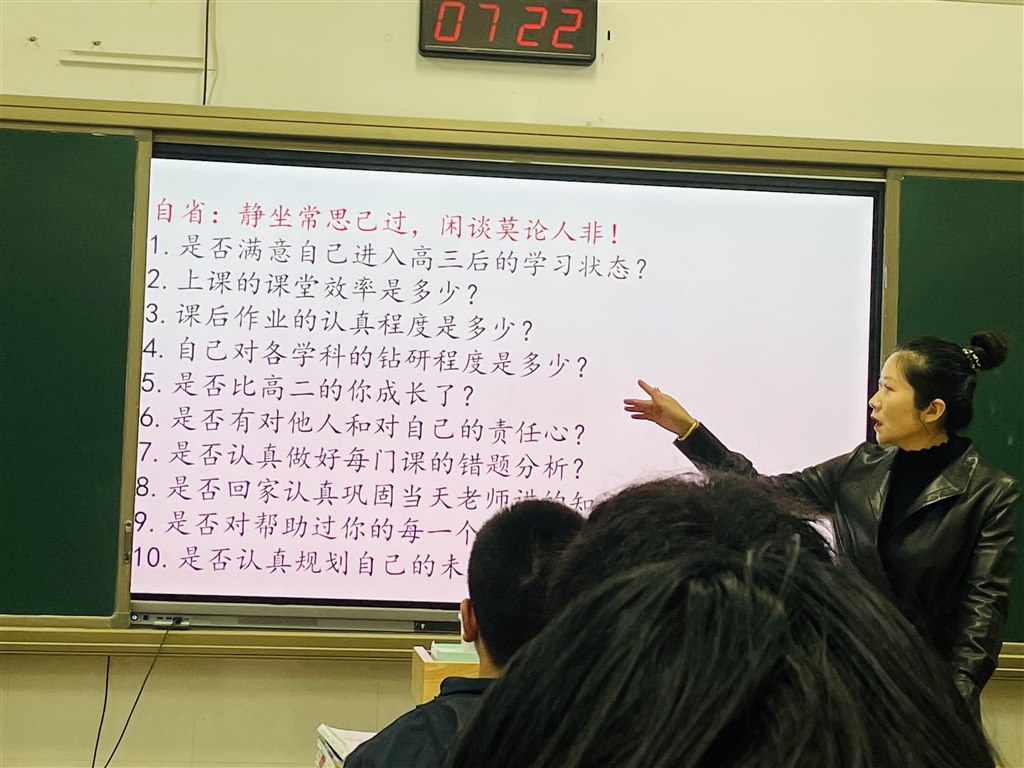 07 22
自省：静坐常思己过，闲谈莫论人非！
1. 是否满意自己进入高三后的学习状态？
2. 上课的课堂效率是多少？
3. 课后作业的认真程度是多少？
4. 自己对各学科的钻研程度是多少？
5. 是否比高二的你成长了？
6. 是否有对他人和对自己的责任心？
7. 是否认真做好每门课的错题分析？
8. 是否回家认真巩固当天老师讲的知
9. 是否对帮助过你的每一个
10. 是否认真规划自己的未